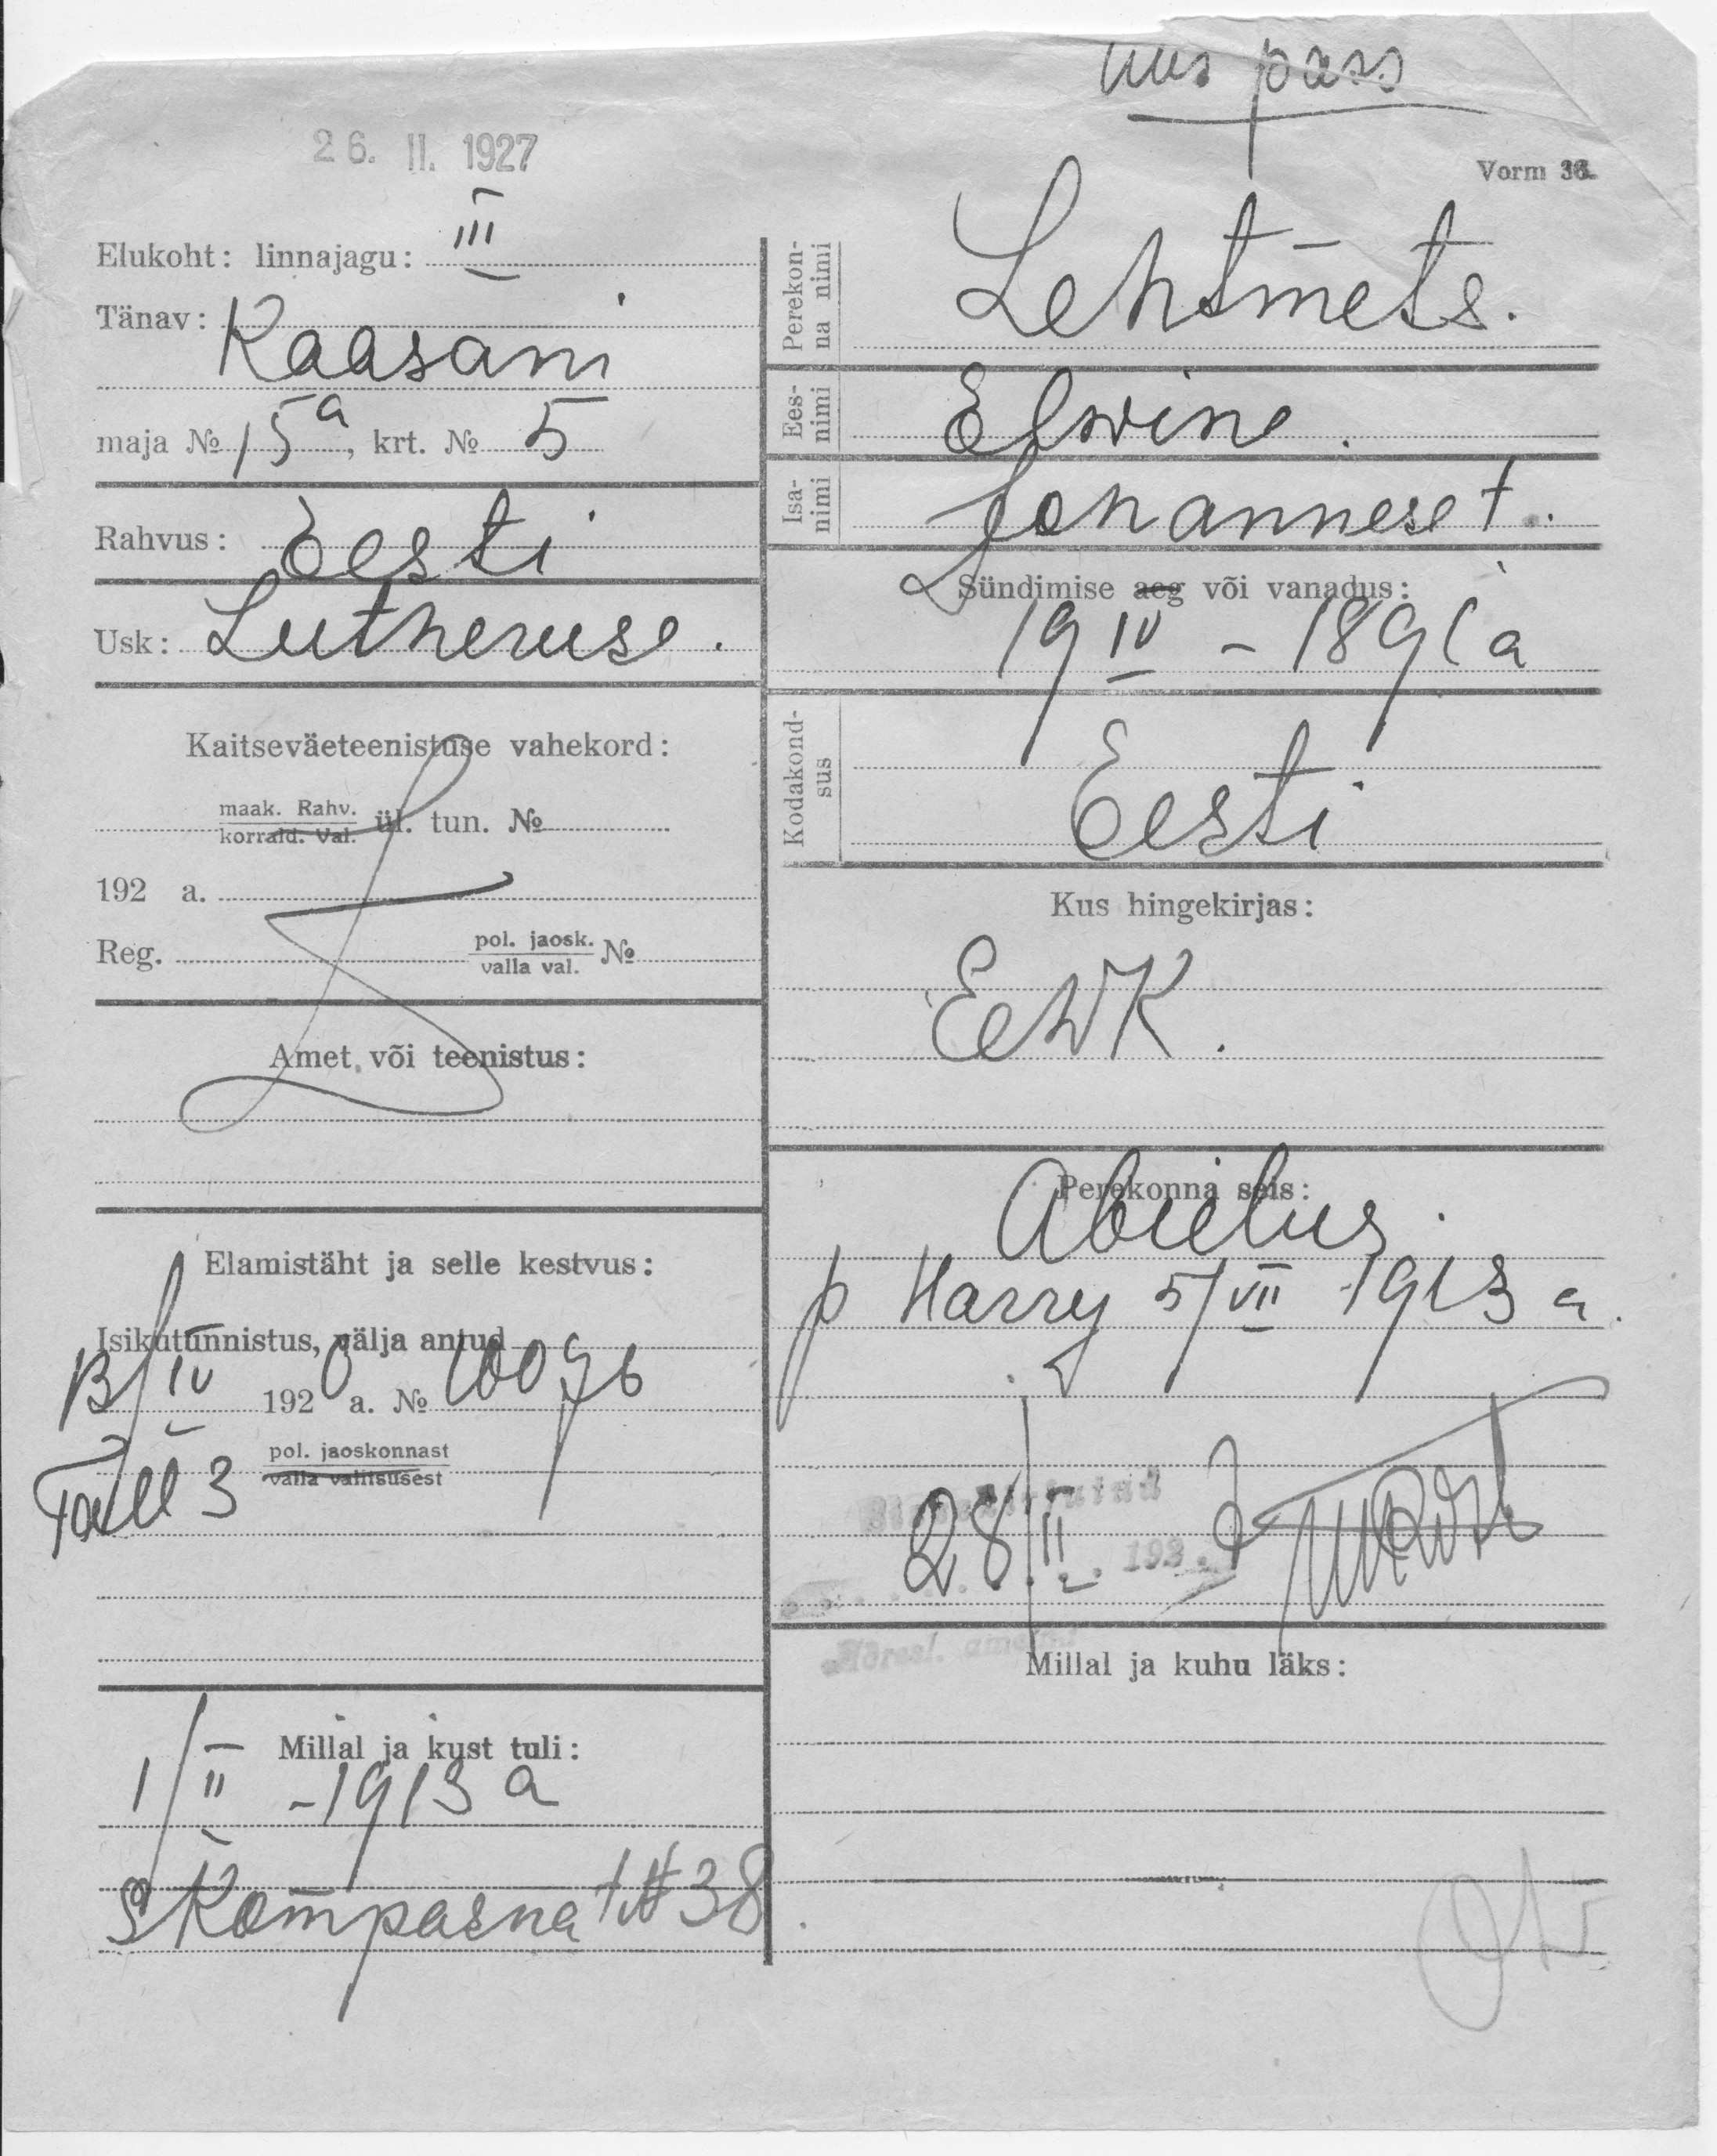 uus pass
26. II. 1927
Vorm 36.
Elukoht: linnajagu: III
Tänav: Kaasani
maja № 15a, krt. № 5
Rahvus: Eesti
Usk: Lutheruse.
Kaitseväeteenistuse vahekord:
maak. Rahv.
korrald. Val. ül. tun. №
192 a.
Reg. pol. jaosk. №
valla val.
Amet või teenistus:
Elamistäht ja selle kestvus:
Isikutunnistus, välja antud
13/IV 1920 a. № 10096
Tall 3 pol. jaoskonnast
valla valitsusest
Millal ja kust tuli:
1/II - 1913 a
S Kompasna t № 38
Perekonna nimi
Lehtmets.
Eesnimi
Elwine.
Isanimi
Johannese t.
Sündimise aeg või vanadus:
19 IV - 1891 a
Kodakondsus
Eesti
Kus hingekirjas:
EWK.
Perekonna seis:
Abielus.
p Harry 5/VII 1913 a.
28/II 192.7
Millal ja kuhu läks: